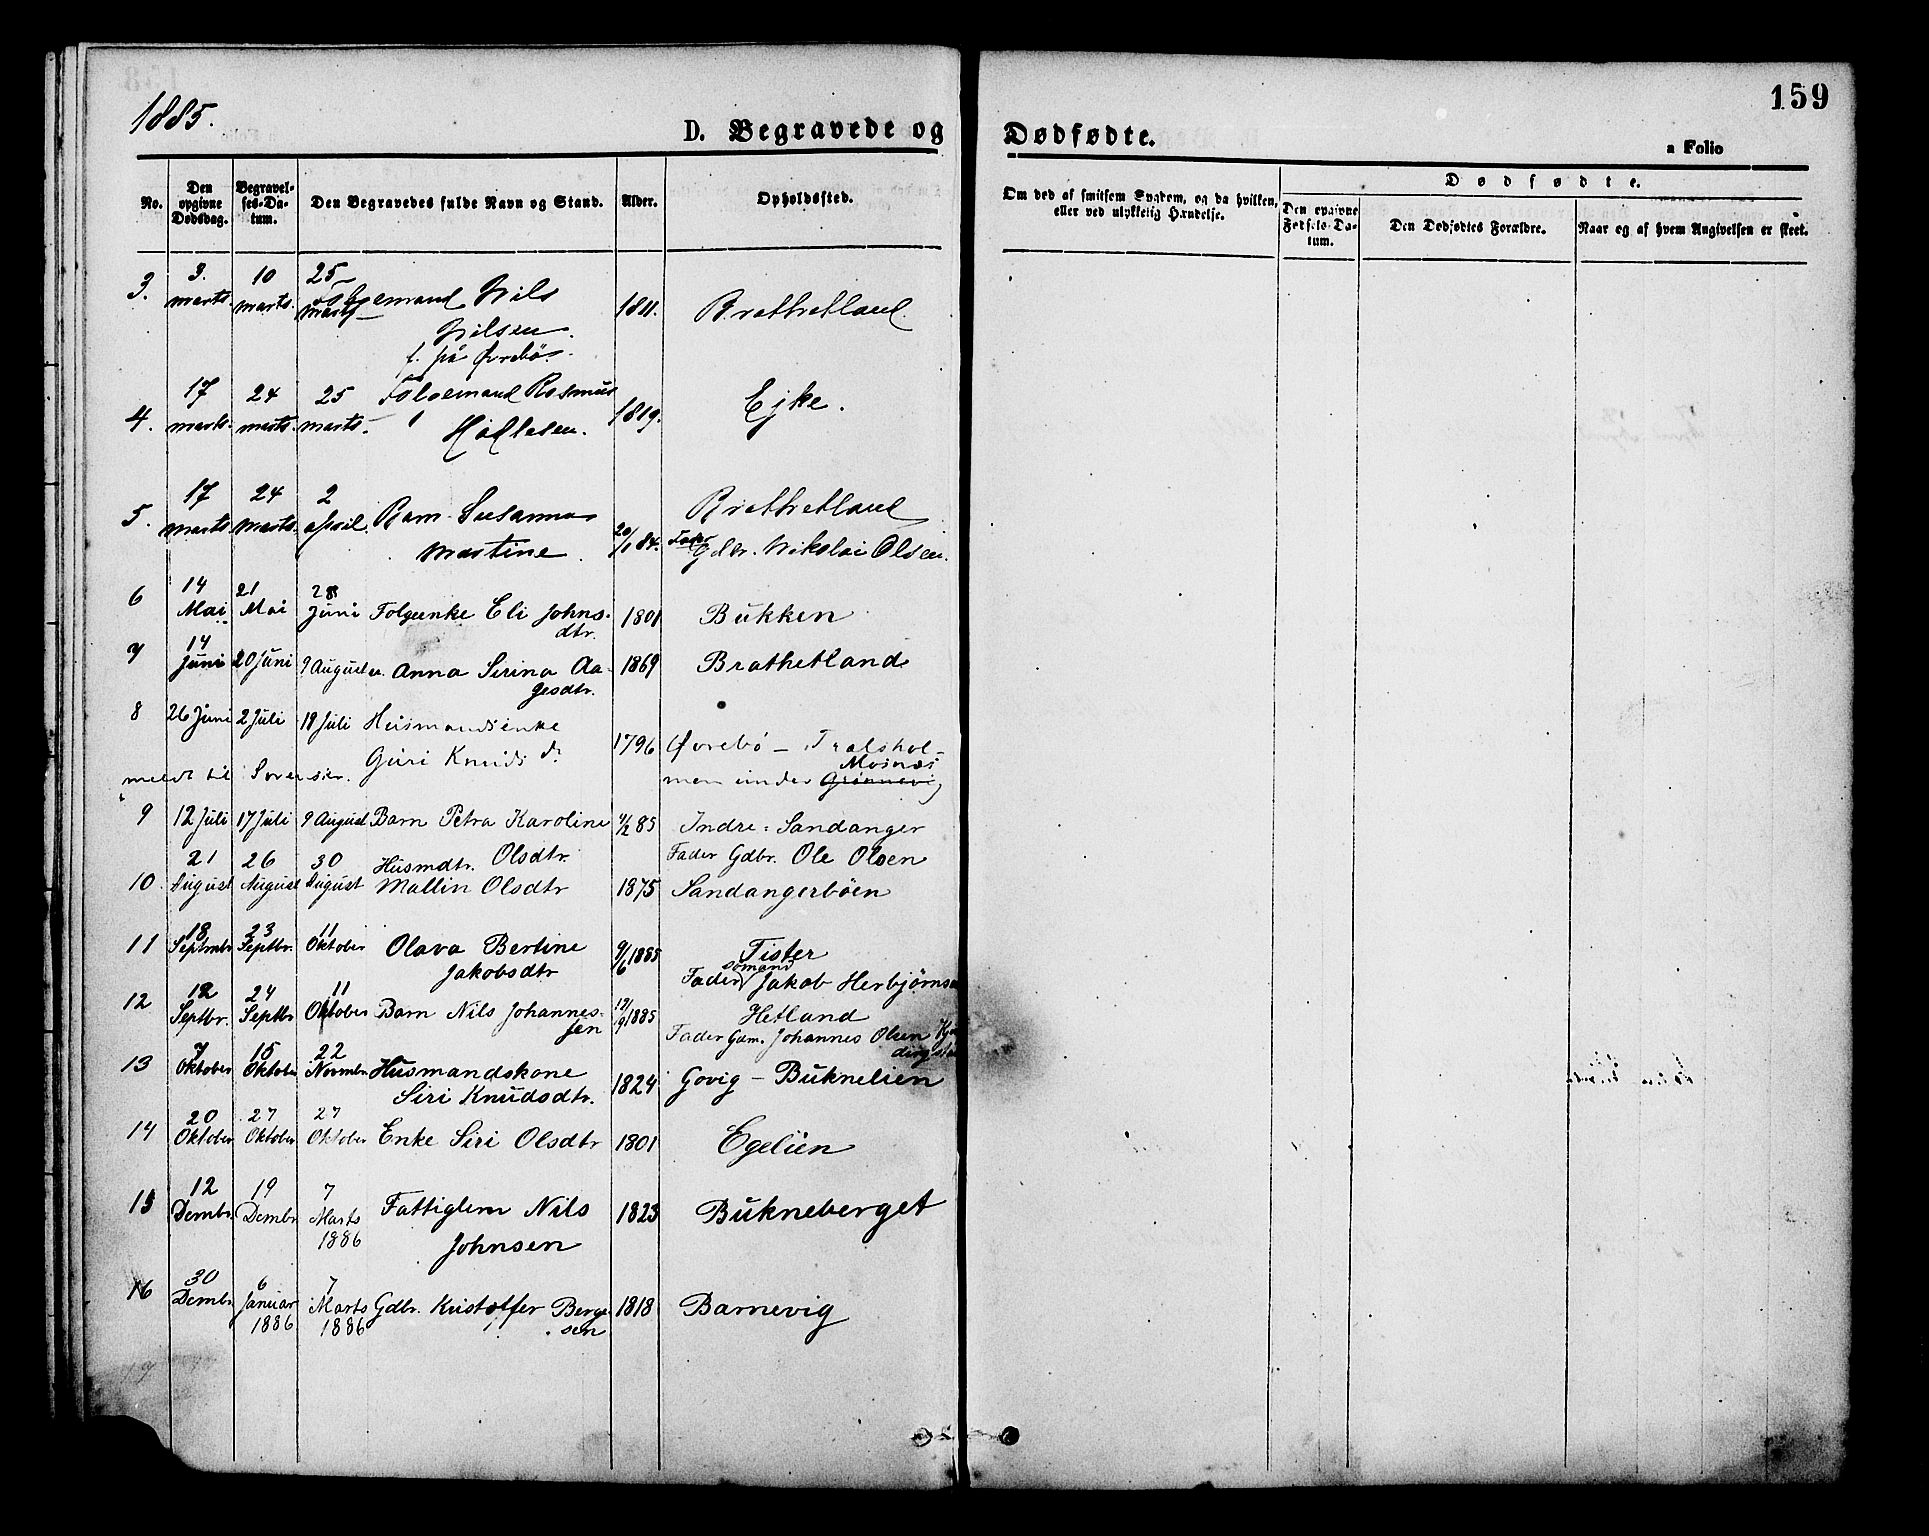 159
1885.
D. Begravede og Dødfødte.
a Folio
No.
Den opgivne Dødsdag.
Begravelses-Datum.
Den Begravedes fulde Navn og Stand.
Alder.
Opholdssted.
Om død af smitsom Sygdom, og da hvilken, eller ved ulykkelig Hændelse.
Dødfødte.
Den opgivne Fødsels-Datum.
Den Dødfødtes Forældre.
Naar og af hvem Angivelsen er skeet.
3. 3. marts. 10 marts. 25 marts Folgemand Nils 1811. Brathetland
Nilsen.
f. på Øvrebö.
4. 17 marts. 24 marts. 25 marts. Folgemand Rasmus 1819. Ejke.
5. 17 marts 24 marts. 2 april. Barn Susanna Brathetland
Martine. 20/1 84. Fader Gdbr. Nikolai Olsen.
6 14 Mai 21 Mai 28 Juni Folgeenke Eli Johns- 1801 Bukken
dtr.
7 14 Juni 20 Juni 9 August Anna Serina Aa- 1869 Brathetland
gesdtr.
8 26 Juni 2 Juli 19 Juli Husmandsenke
Guri Knuds d. 1796 Øvrebö - Tralshol-
Mosnæs
meldt til Sorenskr. men under Grönnevig
9 12 Juli 17 Juli 9 August Barn Petra Karoline 4/2 85 Indre-Sandanger
Olsdtr. Fader Gdbr. Ole Olsen
10. 21 August 26 August 30 August Husmdtr. Mallin Olsdtr 1875 Sandangerböen
11 18 Septmbr 23 Septbr. 11 Oktober Olava Bertine 9/6 1885 Tister
Jakobsdtr Fader sömand Jakob Herbjörns
12 12 Septbr. 24 Septbr 11 Oktober Barn Nils Johannes- 1885 Hetland
sen Fader Gdm. Johannes Olsen
13 7 Oktober 15 Oktober 22 Novmbr Husmandskone 1824 Govig - Buknelien
Siri Knudsdtr.
14 20 Oktober 27 Oktober 27 Oktober Enke Siri Olsdtr 1801 Egelien
15 12 Dembr. 19 Dembr 7 Marts 1886 Fattiglem Nils 1823 Bukneberget
Johnsen
16 30 Dembr 6 Januar 1886 7 Marts 1886 Gdbr. Kristoffer Berge- 1818 Barnevig
sen